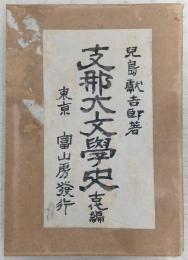 兒島獻吉郎著
支那大文學史 古代編
東京 冨山房發行